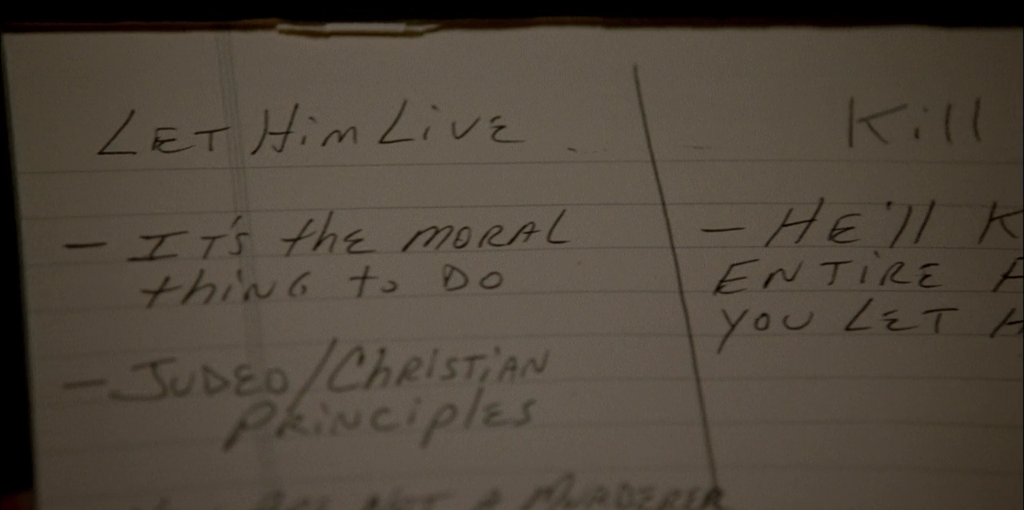 LET Him LiVE
Kill
- IT'S thE mORAL
thiNG to DO
- JUDEO/ChRiSTiAN
PRiNCiplES
NOT A MURDERER
- HE'll K
ENTiRE
YOU LET H